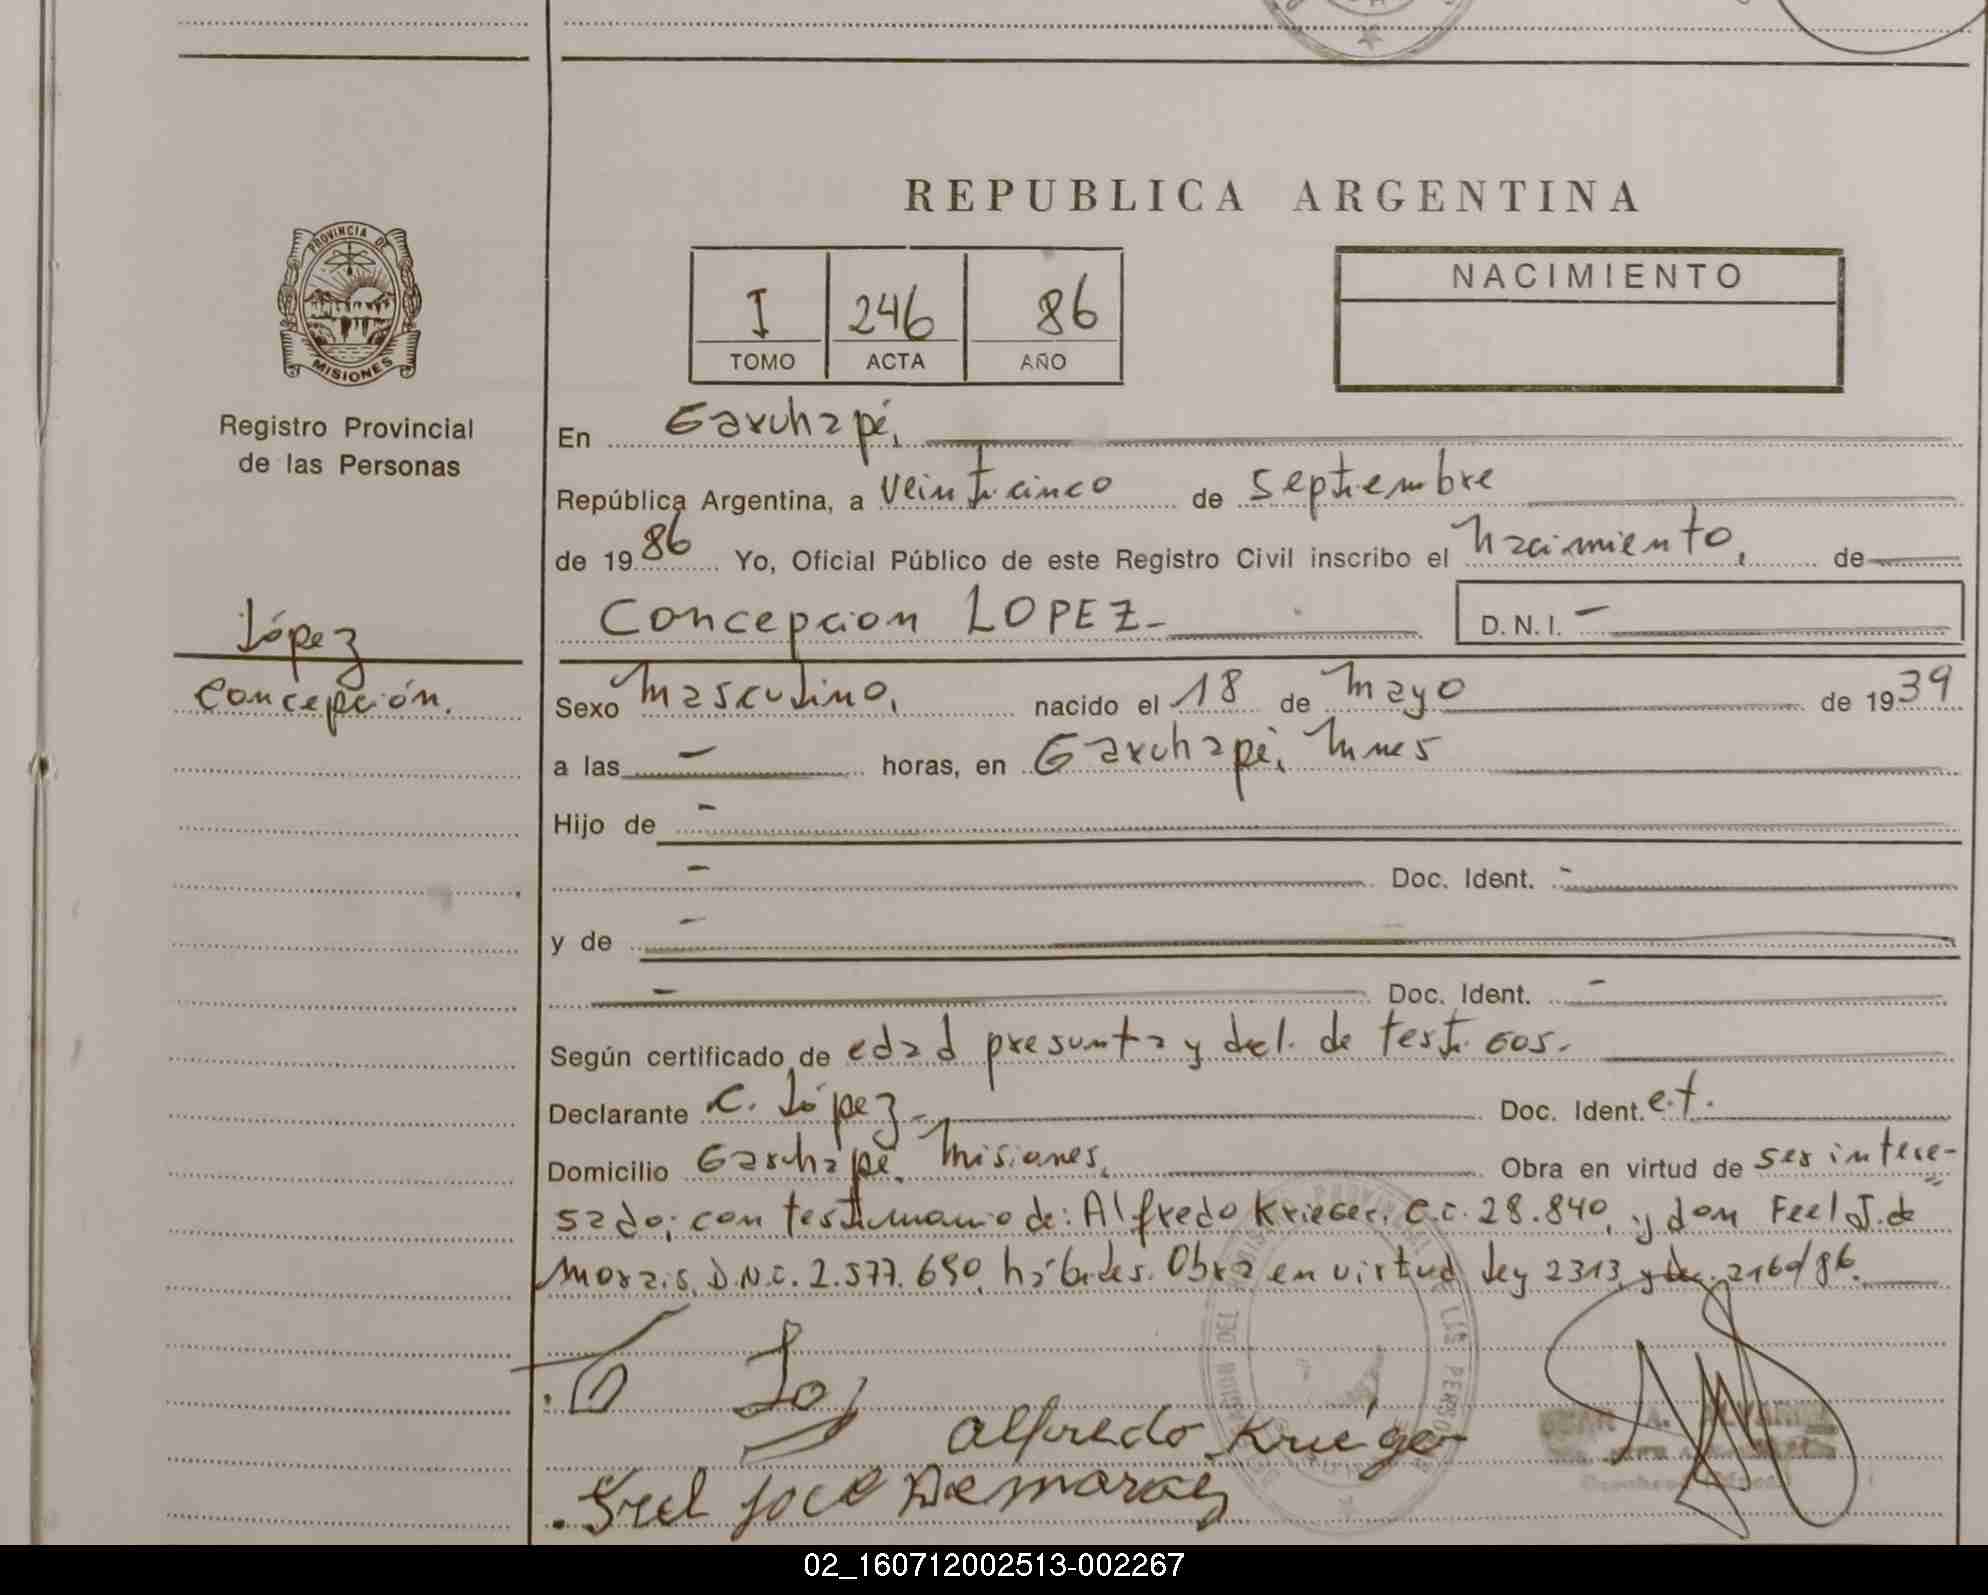 REPUBLICA ARGENTINA
PROVINCIA DE
MISIONES
Registro Provincial
de las Personas
López
Concepción.
I 246 86
TOMO ACTA AÑO
NACIMIENTO
En Garuhapé,
República Argentina, a veinticinco de septiembre
de 1986 Yo, Oficial Público de este Registro Civil inscribo el nacimiento, de
Concepcion LOPEZ- D. N. I. -
Sexo masculino, nacido el 18 de mayo de 1939
a las - horas, en Garuhapé, Mnes
Hijo de -
- Doc. Ident. -
y de -
- Doc. Ident. -
Según certificado de edad presunta y decl. de testigos.
Declarante C. López- Doc. Ident. e.t.
Domicilio Garuhapé, Misiones, Obra en virtud de ser intere-
sado; con testimonio de: Alfredo Krieger, C.I. 28.840, y don Feel J. de
Morais, D.N.I. 2.577.690, hábiles. Obra en virtud ley 2313, y dec. 2160/86.
Alfredo Krieger
José Demorais
02_160712002513-002267